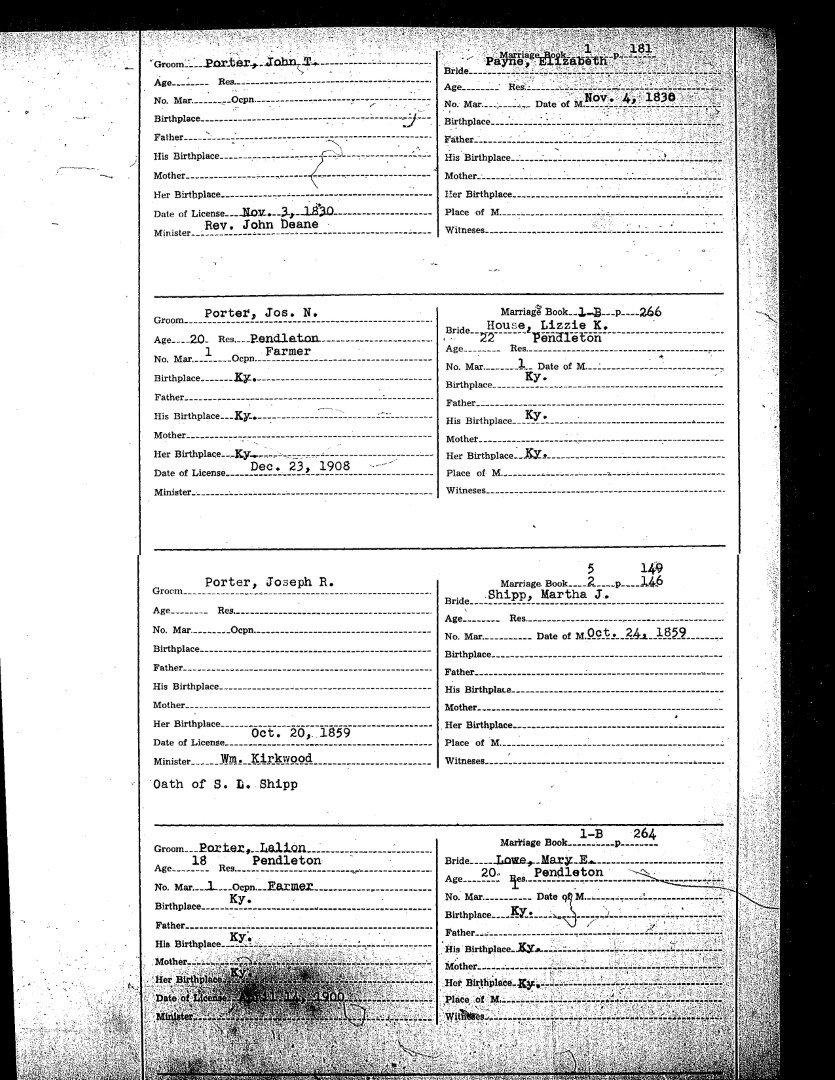 Groom Porter, John T.
Age Res.
No. Mar. Ocpn.
Birthplace
Father
His Birthplace
Mother
Her Birthplace
Date of License Nov. 3, 1830
Minister Rev. John Deane
Marriage Book 1 p. 181
Bride Payne, Elizabeth
Age Res.
No. Mar. Date of M. Nov. 4, 1830
Birthplace
Father
His Birthplace
Mother
Her Birthplace
Place of M.
Witnesses
Groom Porter, Jos. N.
Age 20 Res. Pendleton
No. Mar. 1 Ocpn. Farmer
Birthplace Ky.
Father
His Birthplace Ky.
Mother
Her Birthplace Ky.
Date of License Dec. 23, 1908
Minister
Marriage Book 1-B p. 266
Bride House, Lizzie K.
Age 22 Res. Pendleton
No. Mar. 1 Date of M.
Birthplace Ky.
Father
His Birthplace Ky.
Mother
Her Birthplace Ky.
Place of M.
Witnesses
Groom Porter, Joseph R.
Age Res.
No. Mar. Ocpn.
Birthplace
Father
His Birthplace
Mother
Her Birthplace
Date of License Oct. 20, 1859
Minister Wm. Kirkwood
Oath of S. L. Shipp
5 149
Marriage Book 2 p. 146
Bride Shipp, Martha J.
Age Res.
No. Mar. Date of M. Oct. 24, 1859
Birthplace
Father
His Birthplace
Mother
Her Birthplace
Place of M.
Witnesses
Groom Porter, Lalion
Age 18 Res. Pendleton
No. Mar. 1 Ocpn. Farmer
Birthplace Ky.
Father
His Birthplace Ky.
Mother
Her Birthplace Ky.
Date of License April 14, 1900
Minister
Marriage Book 1-B p. 264
Bride Lowe, Mary E.
Age 20 Res. Pendleton
No. Mar. 1 Date of M.
Birthplace Ky.
Father
His Birthplace Ky.
Mother
Her Birthplace Ky.
Place of M.
Witnesses